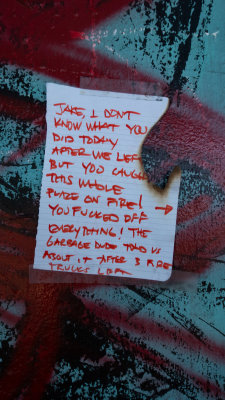 JAKE, I DON'T
KNOW WHAT YOU
DID TODAY
AFTER WE LEFT
BUT YOU CAUGHT
THIS WHOLE
PLACE ON FIRE! →
YOU FUCKED OFF
EVERYTHING! THE
GARBAGE DUDE TOLD US
ABOUT IT AFTER 3 FIRE
TRUCKS LEFT